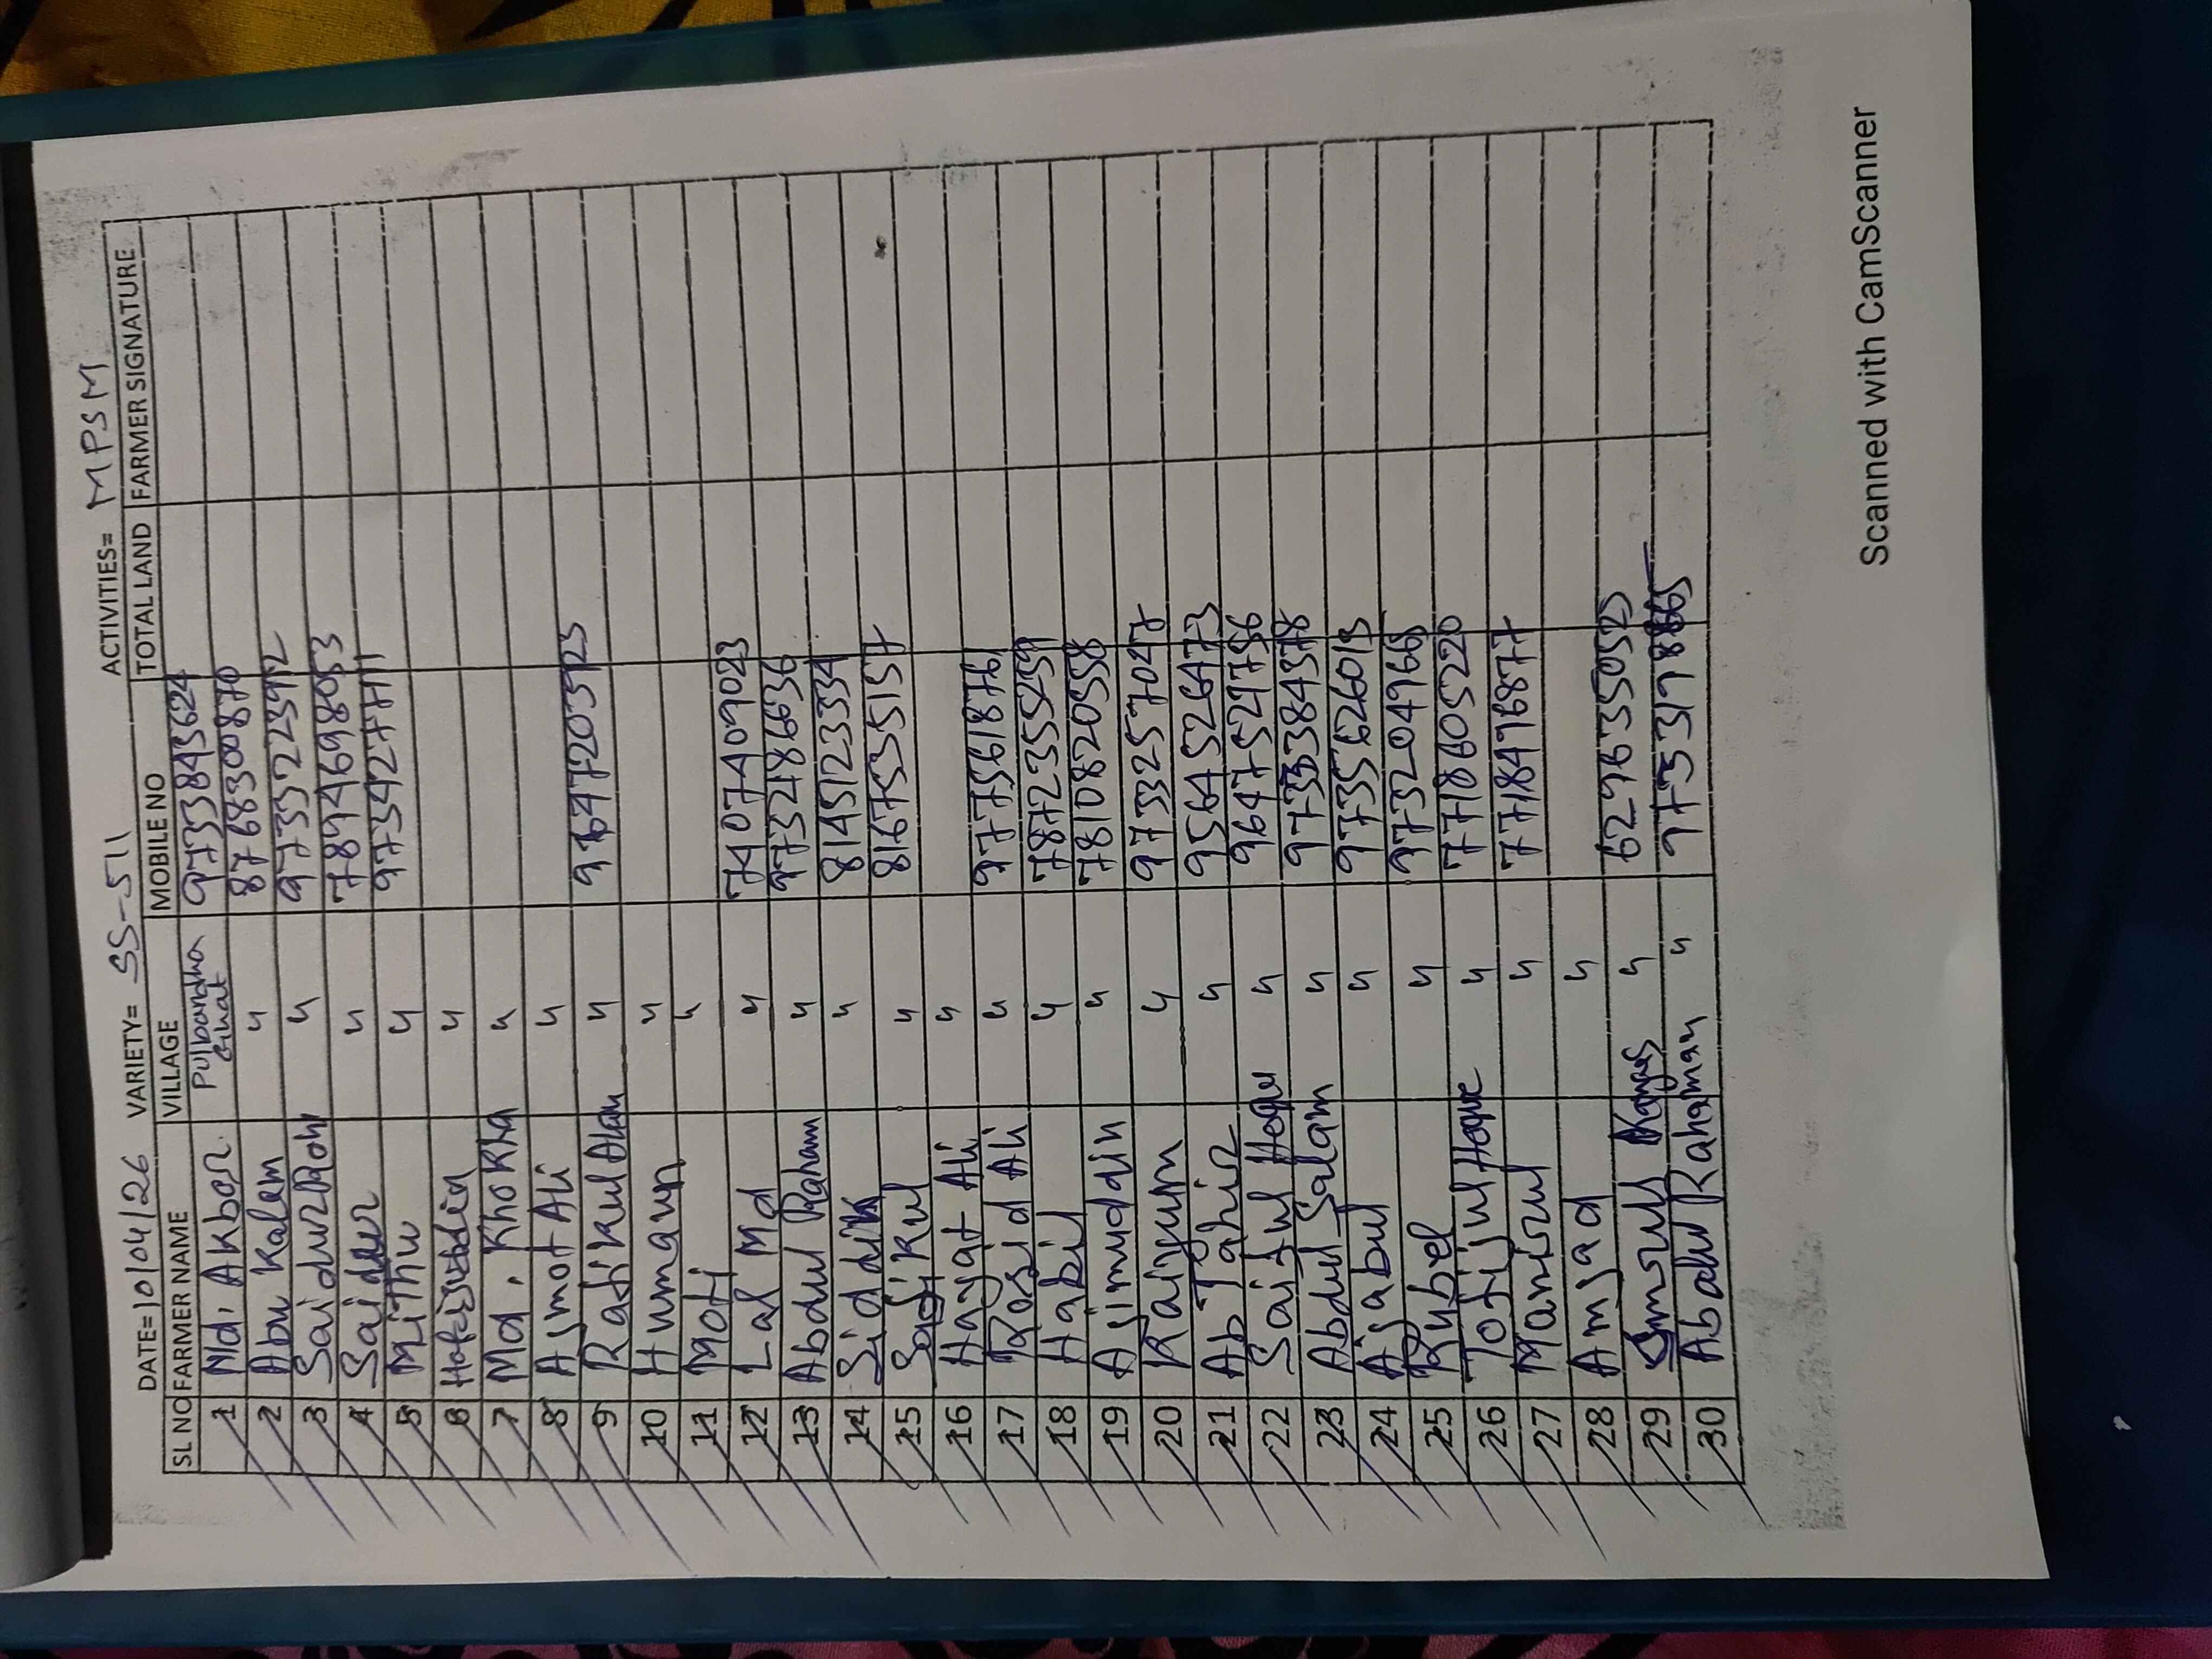 DATE=10/04/26 VARIETY= SS-511 ACTIVITIES= MPSM
SL NO FARMER NAME VILLAGE MOBILE NO TOTAL LAND FARMER SIGNATURE
1 Md. Akbor Pulbandha Ghat 9733843624
2 Abu Kalam " 8768300870
3 Saidur Roh " 9733223912
4 Saidur " 7894698053
5 Mithu " 9734277711
6 "
7 Md. Khokha "
8 Asmot Ali "
9 Rafikul Alam " 9647203725
10 Humayun "
11 Moti "
12 Lal Md " 7407409023
13 Abdul Raham " 9732486636
14 Siddik " 8145123334
15 " 8167535157
16 Hayat Ali "
17 Rosid Ali " 9775618761
18 Habil " 7872355259
19 Asimuddin " 7810820558
20 Kaiyum " 9733257047
21 Ab Tahir " 9564526473
22 Saiful Hoque " 9647527756
23 Abdul Salam " 9733384578
24 Ajabul " 9735626015
25 Rubel " 9732049766
26 Tofijul Hoque " 7718605220
27 Manirul " 7718476877
28 Amjad "
29 " 6296355052
30 Abdul Rahaman "
Scanned with CamScanner